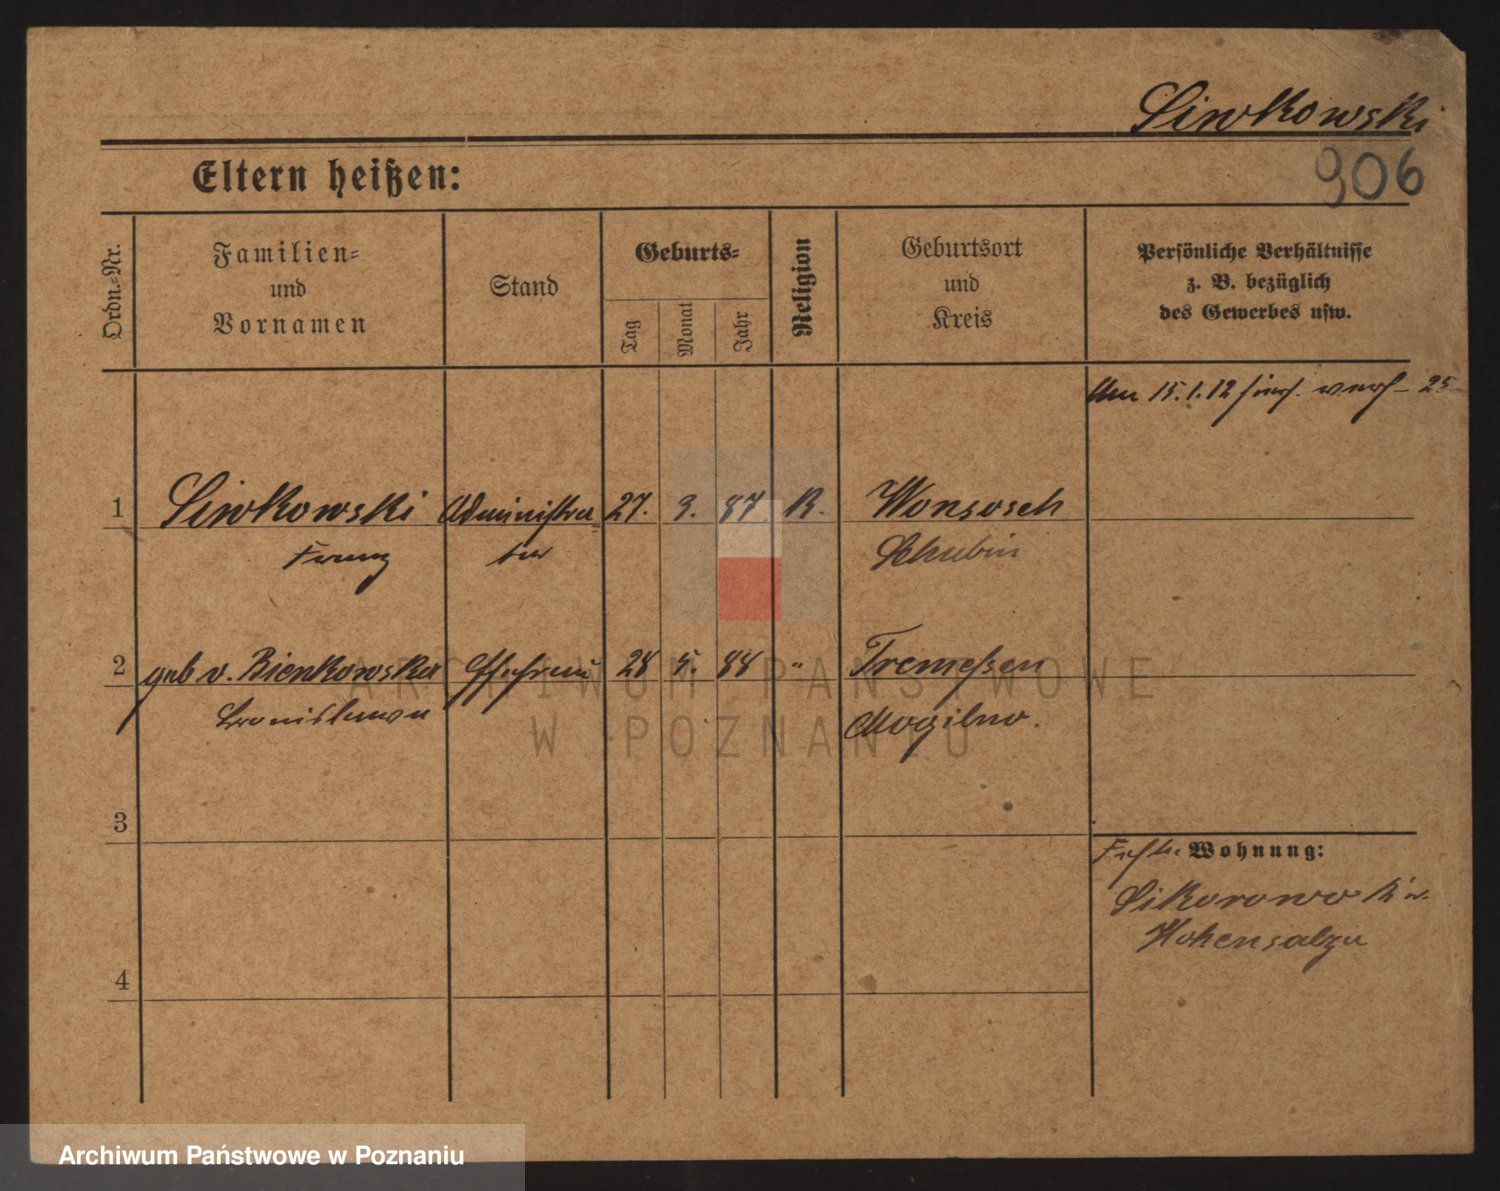 Siwkowski
906
Eltern heißen:
Ordn.-Nr.
Familien-
und
Vornamen
Stand
Geburts-
Tag
Monat
Jahr
Religion
Geburtsort
und
Kreis
Persönliche Verhältnisse
z. B. bezüglich
des Gewerbes usw.
Am 15.1.12 hier
1 Siwkowski Administra 27. 9. 87 K. Wonsosch
Franz tor Schubin
2 geb. v. Bienkowska Ehefrau 28 5. 88 " Tremessen
Bronislawa Mogilno.
ARCHIWUM PAŃSTWOWE
W POZNANIU
3
4
Wohnung:
Sikorowo Kr.
Hohensalza
Archiwum Państwowe w Poznaniu